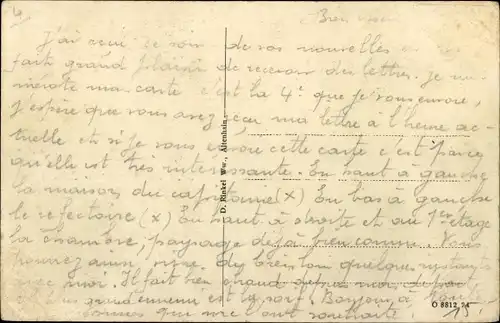 4
Bien
J'ai reçu ce soir de vos nouvelles
fait grand plaisir de recevoir des lettres. Je nu-
mérote ma carte c'est la 4e que je vous envoie,
j'espère que vous avez reçu ma lettre à l'heure ac-
tuelle et si je vous envoie cette carte c'est parce
qu'elle est très intéressante. En haut à gauche
la maison du capitaine (x) En bas à gauche
le refectoire (x) En haut à droite et au 1er étage
la chambre, paysage déjà bien connu. Vous
pourrez ainsi vivre de bien loin quelques instants
avec moi. Il fait bien chaud depuis mon
grand ennemi est la soif. Bonjour à
que me l'ont souhaité.
D. Rinkel Ww., Altenhein.
O 8812 74